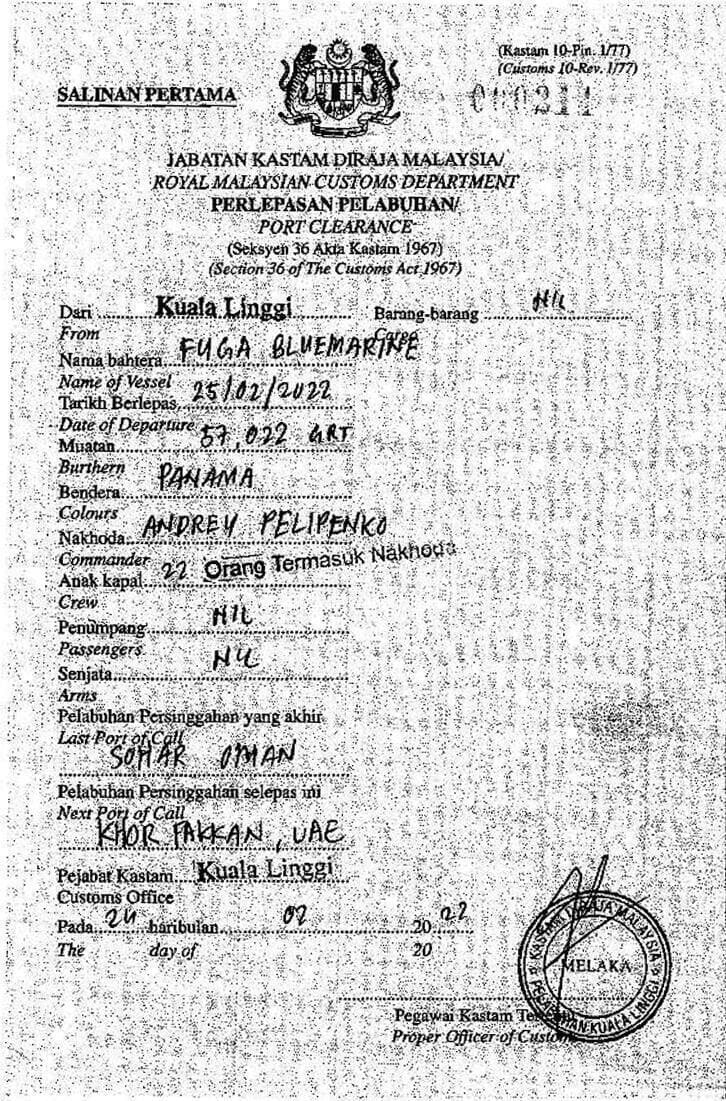 (Kastam 10-Pin. 1/77)
(Customs 10-Rev. 1/77)
SALINAN PERTAMA
JABATAN KASTAM DIRAJA MALAYSIA/
ROYAL MALAYSIAN CUSTOMS DEPARTMENT
PERLEPASAN PELABUHAN/
PORT CLEARANCE
(Seksyen 36 Akta Kastam 1967)
(Section 36 of The Customs Act 1967)
Dari Kuala Linggi Barang-barang NIL
From Cargo
Nama bahtera FUGA BLUEMARINE
Name of Vessel
Tarikh Berlepas 25/02/2022
Date of Departure
Muatan 57,022 GRT
Burthern
Bendera PANAMA
Colours
Nakhoda ANDREY PELIPENKO
Commander
Anak kapal 22 Orang Termasuk Nakhoda
Crew
Penumpang NIL
Passengers
Senjata NIL
Arms
Pelabuhan Persinggahan yang akhir
Last Port of Call
SOHAR OMAN
Pelabuhan Persinggahan selepas ini
Next Port of Call
KHOR FAKKAN, UAE
Pejabat Kastam Kuala Linggi
Customs Office
Pada 24 haribulan 02 20 22
The day of 20
KASTAM DIRAJA MALAYSIA
MELAKA
KUALA LINGGI
Pegawai Kastam
Proper Officer of Customs